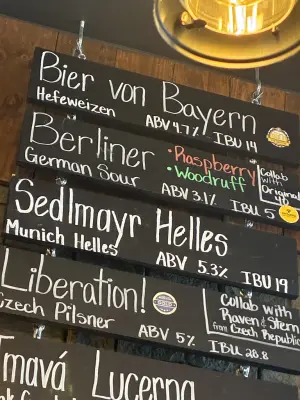 Bier von Bayern
Hefeweizen ABV 4.7% IBU 14
Berliner •Raspberry
•Woodruff
German Sour ABV 3.1% IBU 5
Collab
with
Original
40
Sedlmayr Helles
Munich Helles ABV 5.3% IBU 19
Liberation!
Czech Pilsner ABV 5% IBU 28.8
Collab with
Raven & Stern
from Czech Republic
Tmavá Lucerna